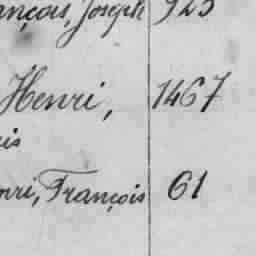 ançois, Joseph 923
Henri, 1467
is
nri, François 61